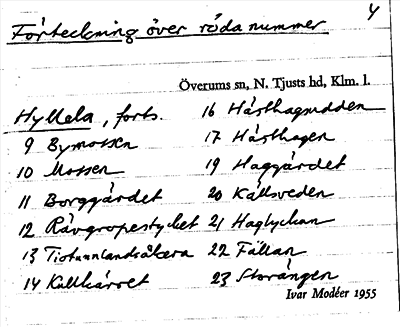 4
Förteckning över röda nummer
Överums sn, N. Tjusts hd, Klm. l.
Hyllela, forts.
9 Bymossen
10 Mossen
11 Borggärdet
12 Rävgropestycket
13 Tiotunnlandsåkern
14 Kullkärret
16 Hästhagsudden
17 Hästhagen
19 Haggärdet
20 Källsveden
21 Haglyckan
22 Fållan
23 Storängen
Ivar Modéer 1955